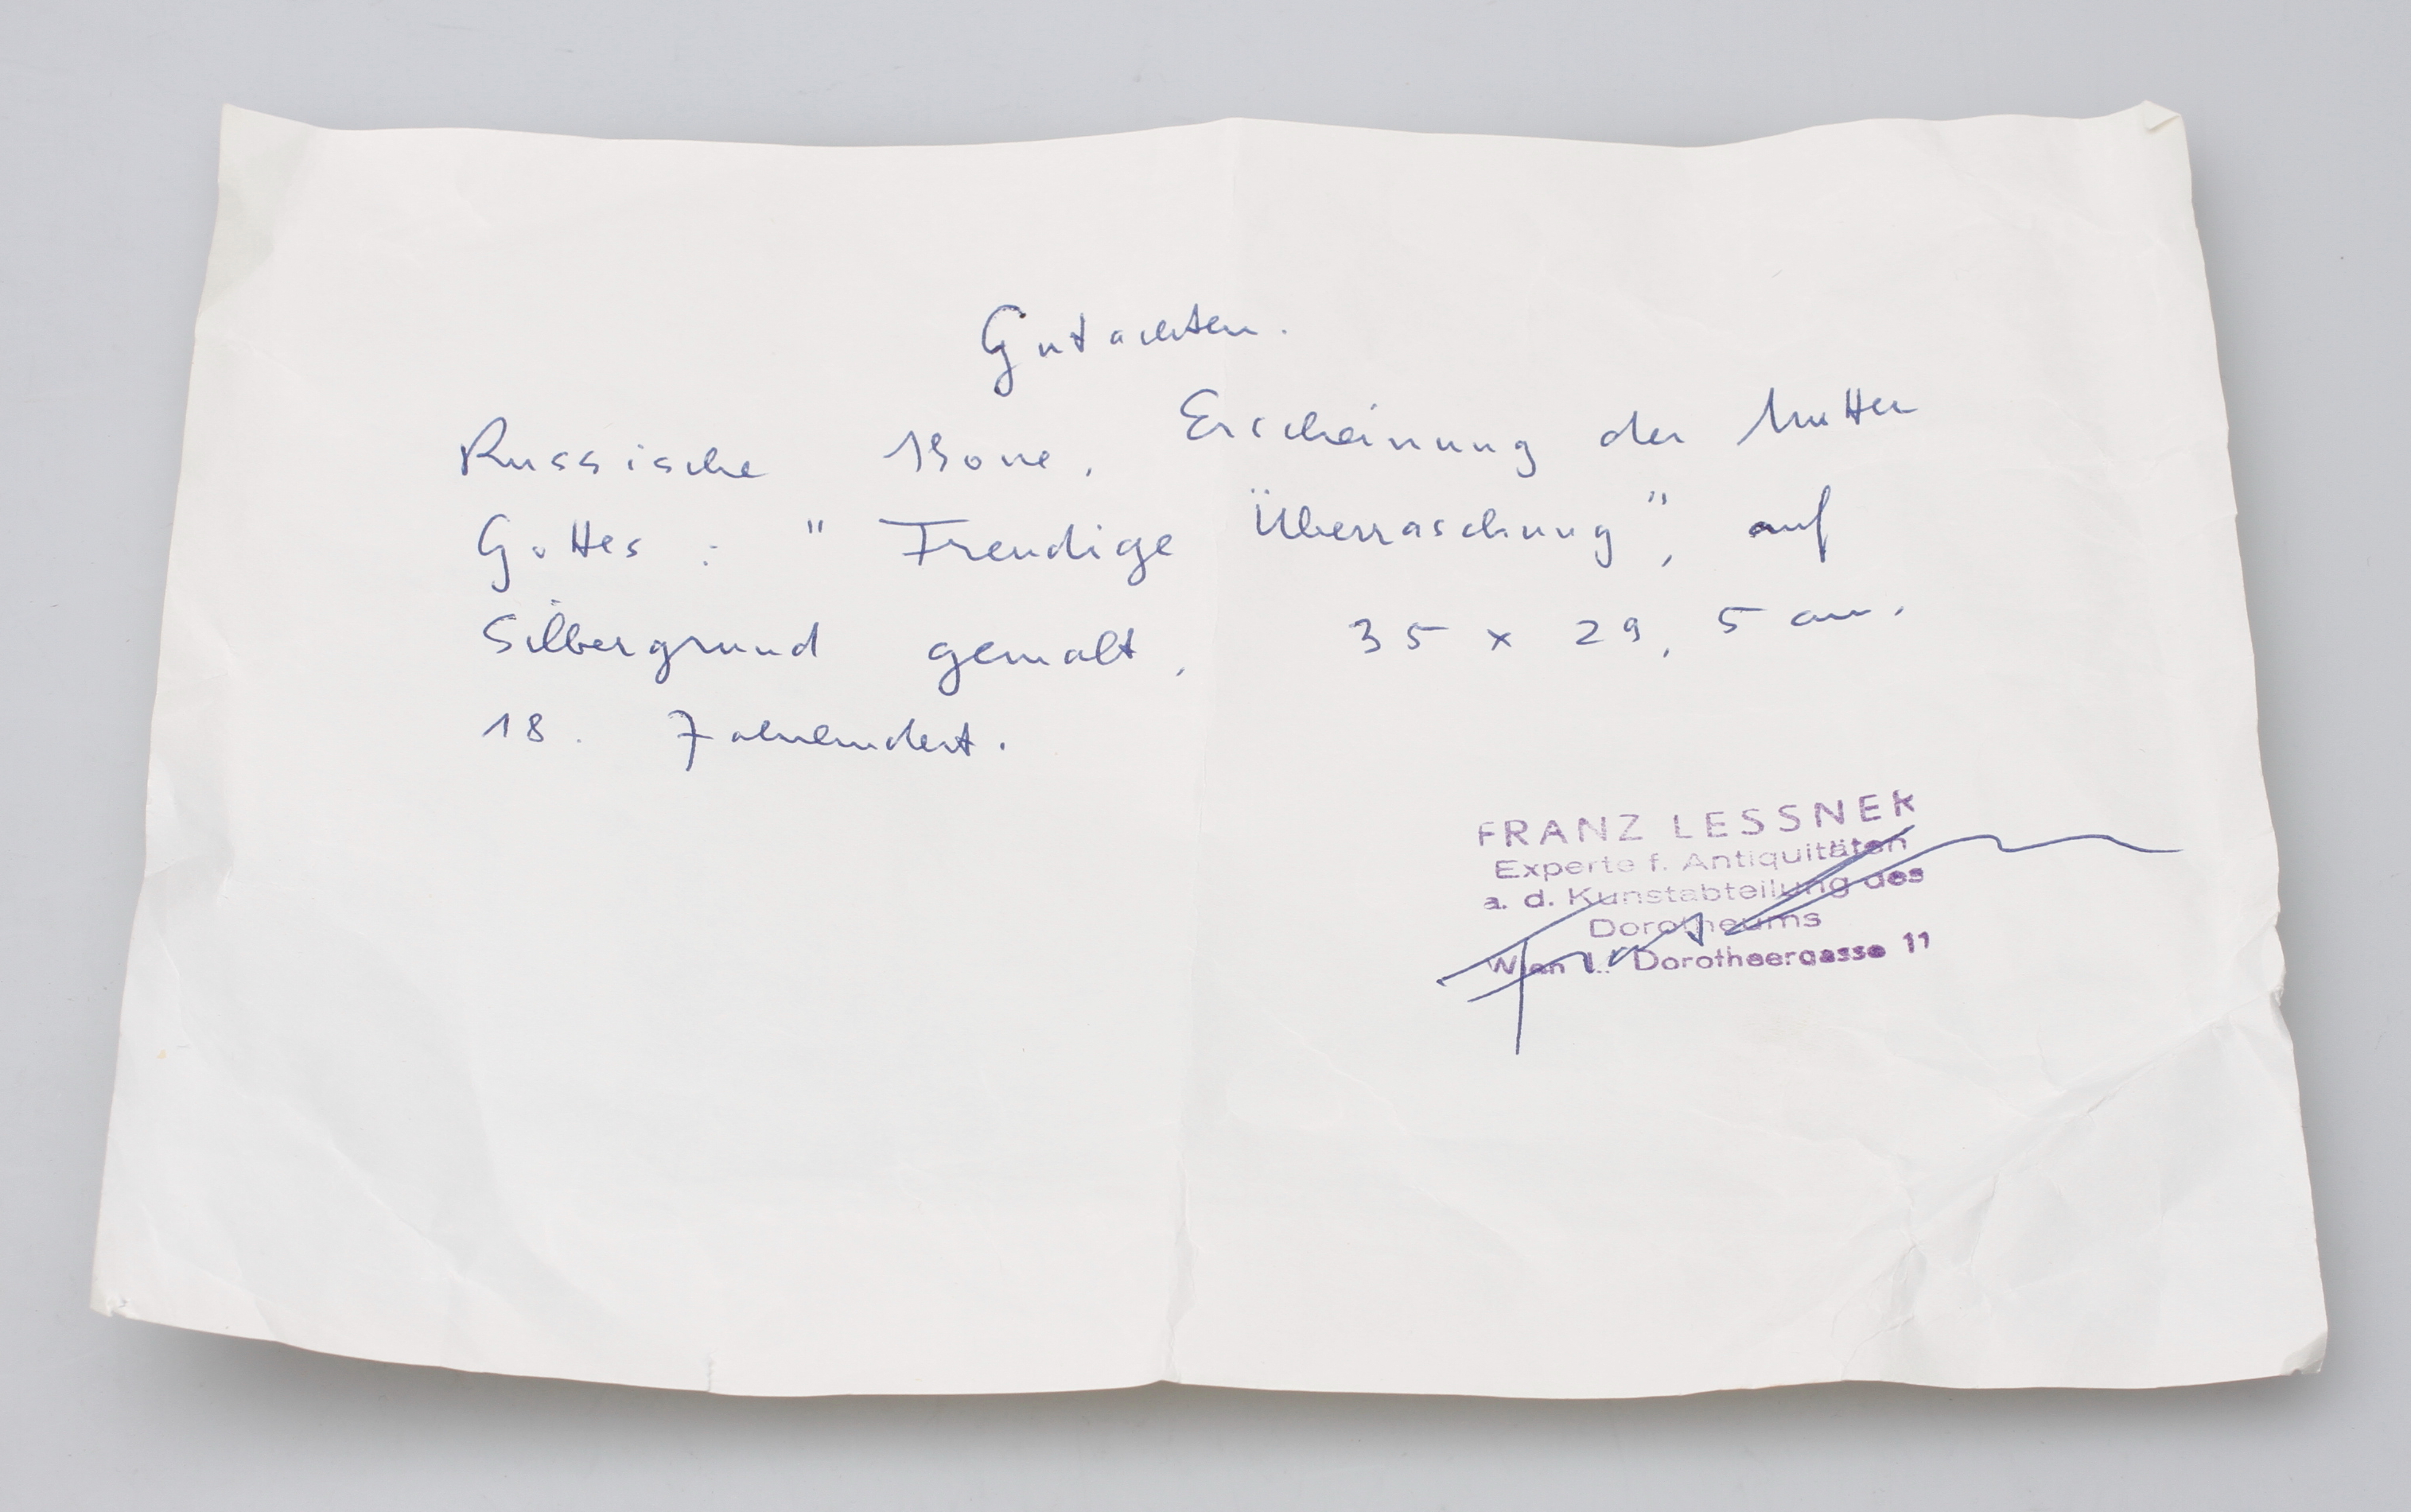 Gutachten.
Russische Ikone, Erscheinung der Mutter
Gottes : "Freudige Überraschung", auf
Silbergrund gemalt, 35 x 29,5 cm,
18. Jahrhundert.
FRANZ LESSNER
Experte f. Antiquitäten
a. d. Kunstabteilung des
Dorotheums
Wien I., Dorotheergasse 11